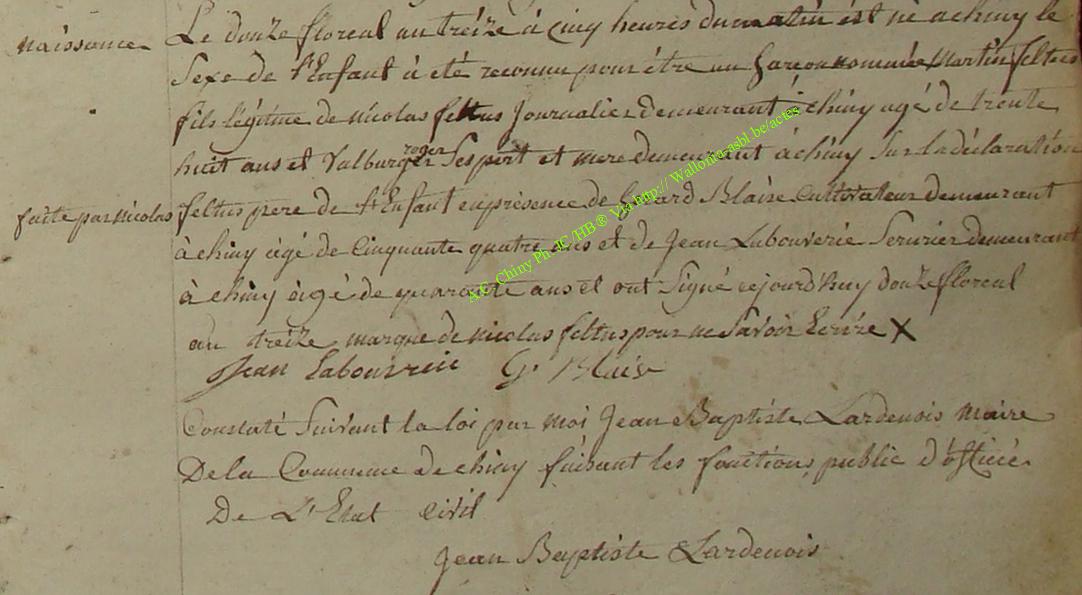 naissance Le douze floreal an treize à cinq heures du matin est né a chiny le
Sexe de l'Enfant à eté reconnu pour être un Garcon nommée Martin feltus
fils légitime de nicolas feltus Journalier demeurant à chiny agé de trente
huit ans et Valburge roger Ses pert et mere demeurant à chiny Sur la déclaration
faite par nicolas feltus pere de l'Enfant en présence de Gerard Blaise Cultivateur demeurant
à chiny agé de Cinquante quatre ans et de Jean Labouverie Serurier demeurant
à chiny àgé de quarante ans et ont Signé cejourd'huy douze floreal
an treize marque de nicolas feltus pour ne Savoir Ecrire X
Jean Labouverie G. Blaise
Constaté Suivant la loi par moi Jean Baptiste Lardenois Maire
De la Commune de chiny faisant les fonctions public d'officié
De L'Etat Civil
Jean Baptiste Lardenois
A.C. Chiny Ph. JC /HB® Via http:// Wallonia-asbl.be/actes